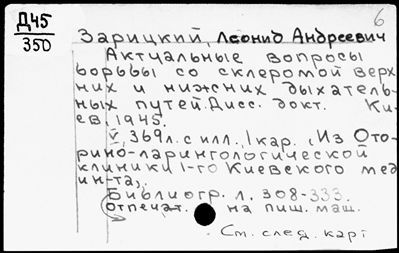 Д45
350
6
Зарицкий, Леонид Андреевич
Актуальные вопросы
борьбы со склеромой верх
них и нижних дыхатель-
ных путей. Дисс. докт. Ки-
ев, 1945.
V, 369 л. с илл., 1 кар. (Из Ото-
рино-ларингологической
клиники 1-го Киевского мед
ин-та).
Библиогр. л. 308-333.
Отпечат. на пиш. маш.
Ст. след. карт